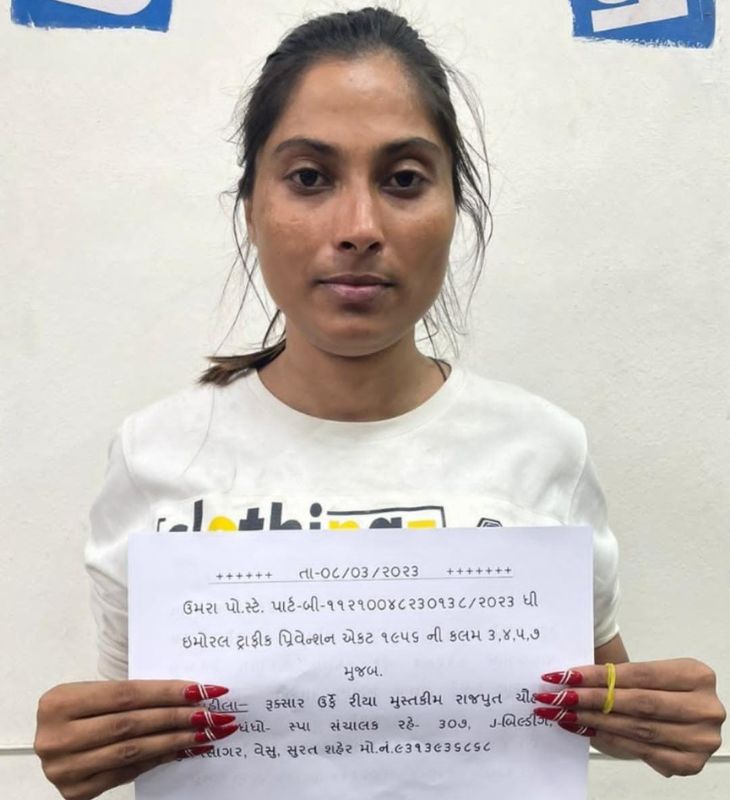 clothingz
++++++ તા-૦૮/૦૩/૨૦૨૩ +++++++
ઉમરા પો.સ્ટે. પાર્ટ-બી-૧૧૨૧૦૦૪૮૨૩૦૧૩૮/૨૦૨૩ ધી
ઇમોરલ ટ્રાફીક પ્રિવેન્શન એકટ ૧૯૫૬ ની કલમ ૩,૪,૫,૭
મુજબ.
રૂક્સાર ઉર્ફે રીયા મુસ્તકીમ રાજપુત
ધંધો- સ્પા સંચાલક રહે- ૩૦૭, J-બિલ્ડીંગ,
વેસુ, સુરત શહેર મો.નં.૯૩૧૩૯૩૬૮૬૮